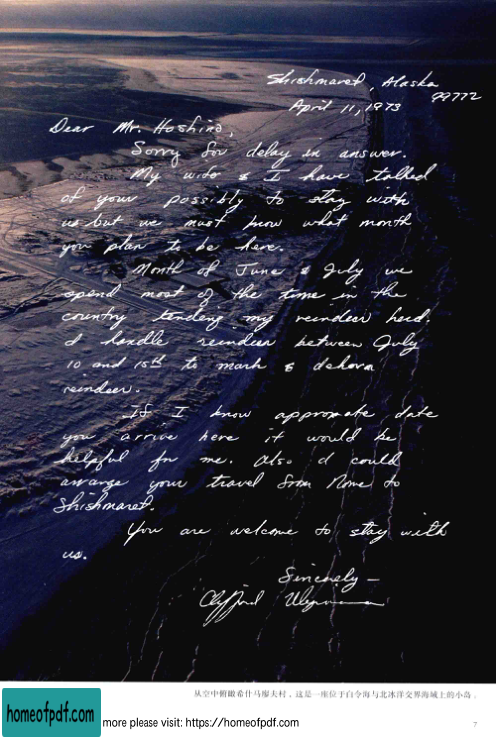 Shishmaref, Alaska
99772
April 11, 1973
Dear Mr. Hoshino,
Sorry for delay in answer.
My wife & I have talked
of your possibly to stay with
us but we must know what month
you plan to be here.
Month of June & July we
spend most of the time in the
country tending my reindeer herd.
I handle reindeer between July
10 and 15th to mark & dehorn
reindeer.
If I know appromate date
you arrive here it would be
helpful for me. Also I could
arrange your travel from Nome to
Shishmaref.
You are welcome to stay with
us.
Sincerely —
Clifford Weyiouanna
从空中俯瞰希什马廖夫村。这是一座位于白令海与北冰洋交界海域上的小岛。
homeofpdf.com
more please visit: https://homeofpdf.com
7